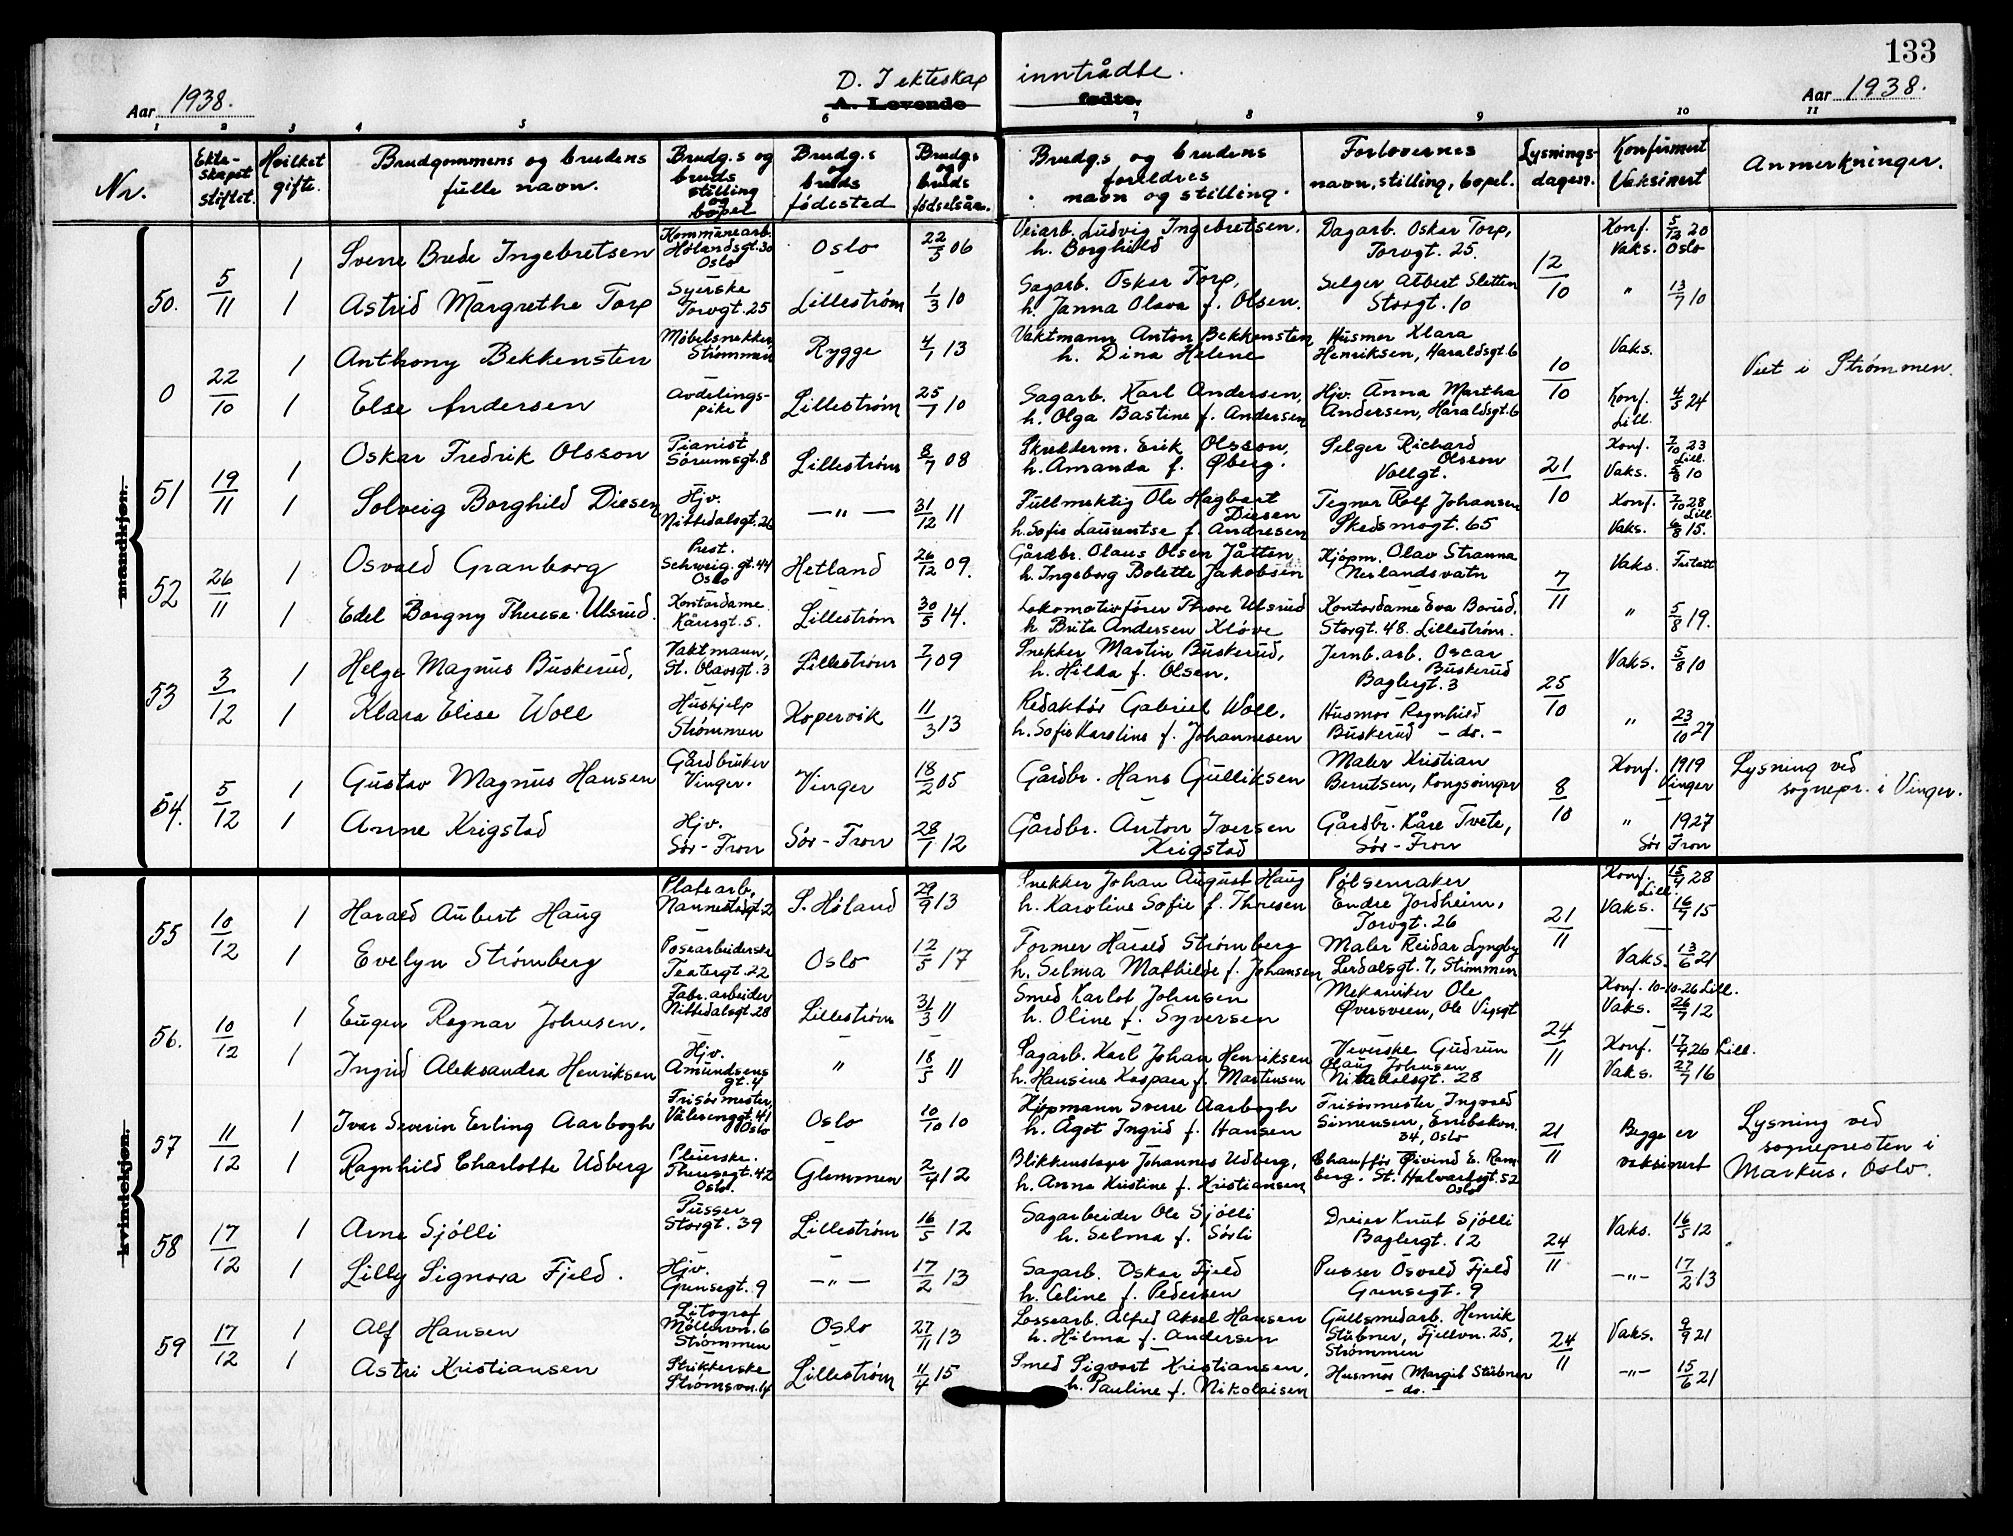 133
Aar 1938.
D. I ekteskap inntrådte.
A. Levende fødte.
Aar 1938.
1 2 3 4 5 6 7 8 9 10 11
Nr.
Ekte-
skapet
stiftet.
Hvilket
gifte.
Brudgommens og brudens
fulle navn.
Brudg.s og
bruds
stilling
og
bopel
Brudg.s
og
bruds
fødested
Brudg.s
og
bruds
fødselsår.
Brudg.s og brudens
foreldres
navn og stilling.
Forlovernes
navn, stilling, bopel.
Lysnings-
dagen.
Konfirmert
Vaksinert
Anmerkninger.
mandkjøn.
50. 5/11
1 Sverre Brede Ingebretsen
Kommunearb.
Hølandsgt. 30
Oslo
Oslo 22/5 06
Veiarb. Ludvig Ingebretsen.
h. Borghild
Dagarb. Oskar Torp,
Torvgt. 25.
12/10
Konf. 5/12 20
Vaks. Oslo
1 Astrid Margrethe Torp
Syerske
Torvgt. 25
Lillestrøm 1/3 10
Sagarb. Oskar Torp,
h. Janna Olava f. Olsen.
Selger Albert Sletten
Storgt. 10
" 13/7 10
0 22/10
1 Anthony Bekkensten
Møbelsnekker
Strømmen
Rygge 4/1 13
Vaktmann Anton Bekkensten,
h. Dina Helene
Husmor Klara
Henriksen, Haraldsgt. 6
10/10
Vaks.
Viet i Strømmen.
1 Else Andersen
Avdelings-
pike
Lillestrøm 25/7 10
Sagarb. Karl Andersen,
h. Olga Bastine f. Andersen
Hjv. Anna Martha
Andersen, Haraldsgt. 6
Konf. 4/5 24
Lill.
51 19/11
1 Oskar Fredrik Olsson
Pianist
Sørumsgt. 8
Lillestrøm 8/7 08
Skredderm. Erik Olsson,
h. Amanda f. Øberg.
Selger Richard
Olsson
Vollgt.
21/10
Konf. 7/10 23
Lill.
Vaks. 5/8 10
1 Solveig Borghild Diesen
Hjv.
Nittedalsgt. 26
—"— 31/12 11
Fullmektig Ole Hagbart
Diesen
h. Sofie Laurentse f. Andresen
Tegner Rolf Johansen
Skedsmogt. 65
Konf. 7/10 28
Lill.
Vaks. 6/8 15.
52 26/11
1 Osvald Granborg
Prest.
Schweig. gt. 44
Oslo
Hetland 26/12 09.
Gårdbr. Olaus Olsen Jåtten
h. Ingeborg Bolette Jakobsen
Kjøpm. Olav Stranna
Nerlandsvatn
7/11
Vaks. Fritatt
1 Edel Borgny Therese Ulsrud.
Kontordame
Kårsgt. 5.
Lillestrøm 30/5 14.
Lokomotivfører Thore Ulsrud
h. Brita Andersen Kløve
Kontordame Eva Borud.
Storgt. 48. Lillestrøm.
" 5/8 19.
53 3/12
1 Helge Magnus Buskerud,
Vaktmann,
St. Olavsgt. 3
Lillestrøm 7/1 09
Snekker Martin Buskerud,
h. Hilda f. Olsen.
Jernb. arb. Oscar
Buskerud
Baglergt. 3
25/10
Vaks. 5/8 10
1 Klara Elise Woll
Huskjelp
Strømmen
Kopervik 11/3 13
Redaktør Gabriel Woll.
h. Sofie Karoline f. Johannesen
Husmor Ragnhild
Buskerud - do. -
" 23/10 27
54. 5/12
1 Gustav Magnus Hansen
Gårdbruker
Vinger.
Vinger 18/2 05
Gårdbr. Hans Gulliksen
Maler Kristian
Berntsen, Kongsvinger
8/10
Konf. 1919
Vinger
Lysning ved
sognepr. i Vinger.
1 Anne Krigstad
Hjv.
Sør-Fron
Sør-Fron 28/1 12
Gårdbr. Anton Iversen
Krigstad
Gårdbr. Kåre Tvete,
Sør-Fron
" 1927
Sør Fron
kvindekjøn.
55 10/12
1 Harald Aubert Haug
Platearb.
Nannestadgt. 2
S. Høland 29/9 13
Snekker Johan August Haug
h. Karoline Sofie f. Thoresen
Pølsemaker
Endre Jordheim,
Torvgt. 26
21/11
Konf. 15/9 28
Lill.
Vaks. 16/9 15
1 Evelyn Strømberg
Posearbeiderske
Teatergt. 22
Oslo 12/5 17
Former Harald Strømberg
h. Selma Mathilde f. Johansen
Maler Reidar Lyngby
Lerdalsgt. 7, Strømmen
Vaks. 13/6 21
56. 10/12
1 Eugen Ragnar Johnsen.
Fabr. arbeider
Nittedalsgt. 28
Lillestrøm 31/3 11
Smed Karlot Johnsen
h. Oline f. Syversen
Mekaniker Ole
Øversveen, Ole Vigsgt
24/11
Konf. 10-10-26 Lill.
Vaks. 26/7 12
1 Ingrid Aleksandra Henriksen
Hjv.
Amundsens
gt. 4
" 18/5 11
Sagarb. Karl Johan Henriksen
h. Hansine Kaspara f. Martinsen
Veverske Gudrun
Olaug Johnsen
Nittedalsgt. 28
Konf. 17/9 26 Lill.
Vaks. 27/7 16
57 11/12
1 Ivar Severin Erling Aarbogh
Frisørmester,
Vålerenggt. 41
Oslo
Oslo 10/10 10
Kjøpmann Sverre Aarbogh
h. Ågot Ingrid f. Hansen
Frisørmester Ingvald
Simensen, Enebakvn.
34, Oslo
21/11
Begge er
vaksinert
Lysning ved
sognepresten i
Markus, Oslo.
1 Ragnhild Charlotte Udberg
Pleierske.
Theresegt. 42
Oslo.
Glemmen 2/4 12
Blikkenslager Johannes Udberg,
h. Anna Kristine f. Kristiansen
Chauffør Øivind E. Ram-
berg. St. Halvardsgt. 52
Oslo
58 17/12
1 Arne Sjølli
Pusser
Storgt. 39
Lillestrøm 16/5 12
Sagarbeider Ole Sjølli
h. Selma f. Sørli
Dreier Knut Sjølli
Baglergt. 12
24/11
Vaks. 16/5 12
1 Lilly Signora Fjeld.
Hjv.
Grensegt. 9
—"— 17/2 13
Sagarb. Oskar Fjeld
h. Celine f. Pedersen
Pusser Osvald Fjeld
Grensegt. 9
—"— 17/2 13
59 17/12
1 Alf Hansen
Litograf
Møllevn. 6
Strømmen
Oslo 27/11 13
Lossearb. Alfred Aksel Hansen
h. Hilma f. Andersen
Gullsmedarb. Henrik
Stübner, Fjellvn. 25,
Strømmen
24/11
Vaks. 9/9 21
1 Astri Kristiansen
Strikkerske
Strømsvn. 14
Lillestrøm 11/4 15
Smed Sigvart Kristiansen,
h. Pauline f. Nikolaisen
Husmor Margit Stübner
- do. -
—"— 15/6 21